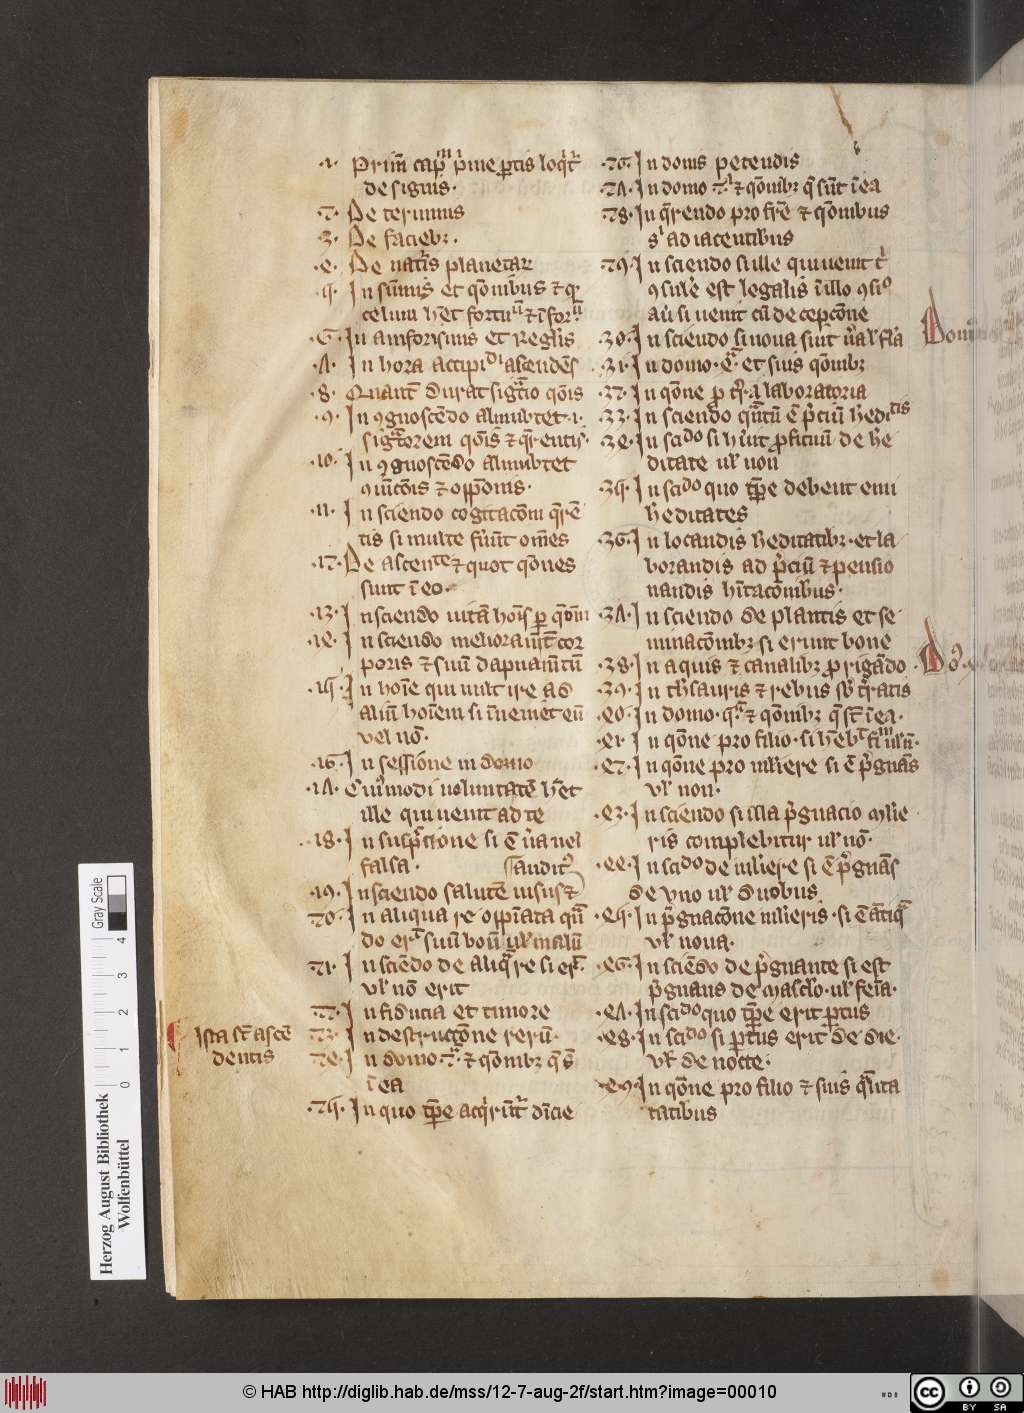 .1. Primū cap̄m p̄me ꝑtis loqͥtʳ
de signis.
.2. De terminis
.3. De faciebꝫ.
.4. De natͥs planetaꝝ
.5. In sūmis et qōnibus ⁊ qr̄
celum hēt fortuᵐ ⁊ īforᵐ
.6. In amforismis et Reglis
.7. In hora accipiᵈⁱ ascendēs
.8. Quant̄ durat sigᵗͣio qōis
.9. In ꝯgnoscēdo almubtet .i.
sigᵗͣorem qōis ⁊ qͣrentis.
.10. In ꝯgnoscēdo almubtet
ꝯiūcōis ⁊ oppōnis.
.11. In sciendo cogitacōm qͣrē
tis si multe fuͥnt om̄es
.12. De ascenᵗᵉ ⁊ quot qōnes
sunt ī eo.
.13. In sciendo uitā hoīs ꝑ qōm
.14. In sciendo melioram̄t̄ cor
poris ⁊ suū dapnam̄tū
.15. In hoīe qui uult ire ad
aliū hoīem si īueniet eū
vel nō.
.16. In sessione in domo
.17. Cuiᵒmodi uoluntatē hēt
ille qui uenit ad te
.18. In suspicione si ē uͣa uel
falsa. auditᵒ
.19. In sciendo salutē uisus ⁊
20. In aliqua re oppīata qn̄
do erit̄ suū bonū ul̄ malū
21. In sciēdo de aliqͣ re si er̄.
ul̄ nō erit
22. In fiducia et timore
23. In destructōne rerū.
24. In domo .2ͣ. ⁊ qōnibꝫ q̄ sͭ
ī ea
.25. In quo tp̄e acqͥrūtʳ diͥcie
Ista sͭ ascē
dentis
.26. In donis petendis
.27. In domo .3ͣ. ⁊ qōnibꝫ q̄ sūt ī ea
28. In qͣrendo pro frē ⁊ qōnibus
sͥ adiacentibus
.29. In sciendo si ille qui uenit tͥ
ꝯsulē est legalis ī illo ꝯsiᵒ
aut si uenit cū decepcōne
.30. In sciendo si noua sunt uͣa ul̄ flā
.31. In domo .4ͣ. et suis qōnibꝫ
.32. In qōne ꝓ trͣ laboratoria
.33. In sciendo qͣntū ē p̄ciū hēdiᵗⁱˢ
.34. In sciᵈᵒ si hūit ꝓficuū de hē
ditate ul̄ non
.35. In sciᵈᵒ quo tp̄e debent emi
hēditates
.36. In locandis hēditatibꝫ. et la
borandis ad p̄ciū ⁊ pensio
nandis hītacōnibus.
.37. In sciendo de plantis et se
minacōnibꝫ si erunt bone
.38. In aquis ⁊ canalibꝫ ꝓ rigādo
.39. In thesauris ⁊ rebus sb̄ tͤratis
.40. In domo .5ͣ. ⁊ qōnibꝫ q̄ sͭ ī ea.
.41. In qōne pro filio. si hēbͭ fiᵐ ul̄ n̄.
.42. In qōne pro mliere si ē p̄gnās
ul̄ non.
.43. In sciendo si illa p̄gnacio mlie
ris complebitur ul̄ nō.
.44. In sciᵈᵒ de mliere si ē p̄gnās
de vno ul̄ duobus
.45. In p̄gnacōne mlieris. si ē ātiqͣ
ul̄ noua.
.46. In sciēdo de p̄gnante si est
p̄gnans de masclo. ul̄ feīa.
.47. In sciᵈᵒ quo tp̄e erit ꝑtus
.48. In sciᵈᵒ si ꝑtus erit de die.
ul̄ de nocte.
.49. In qōne pro filio ⁊ suis qͣlita
tatibus
Herzog August Bibliothek
Wolfenbüttel
Gray Scale
0 1 2 3 4
© HAB http://diglib.hab.de/mss/12-7-aug-2f/start.htm?image=00010
cc BY SA